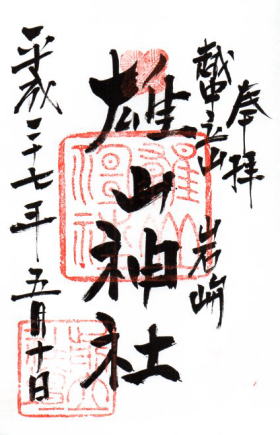 奉拝
越中立山 岩峅
雄山神社
平成二十七年 五月十日